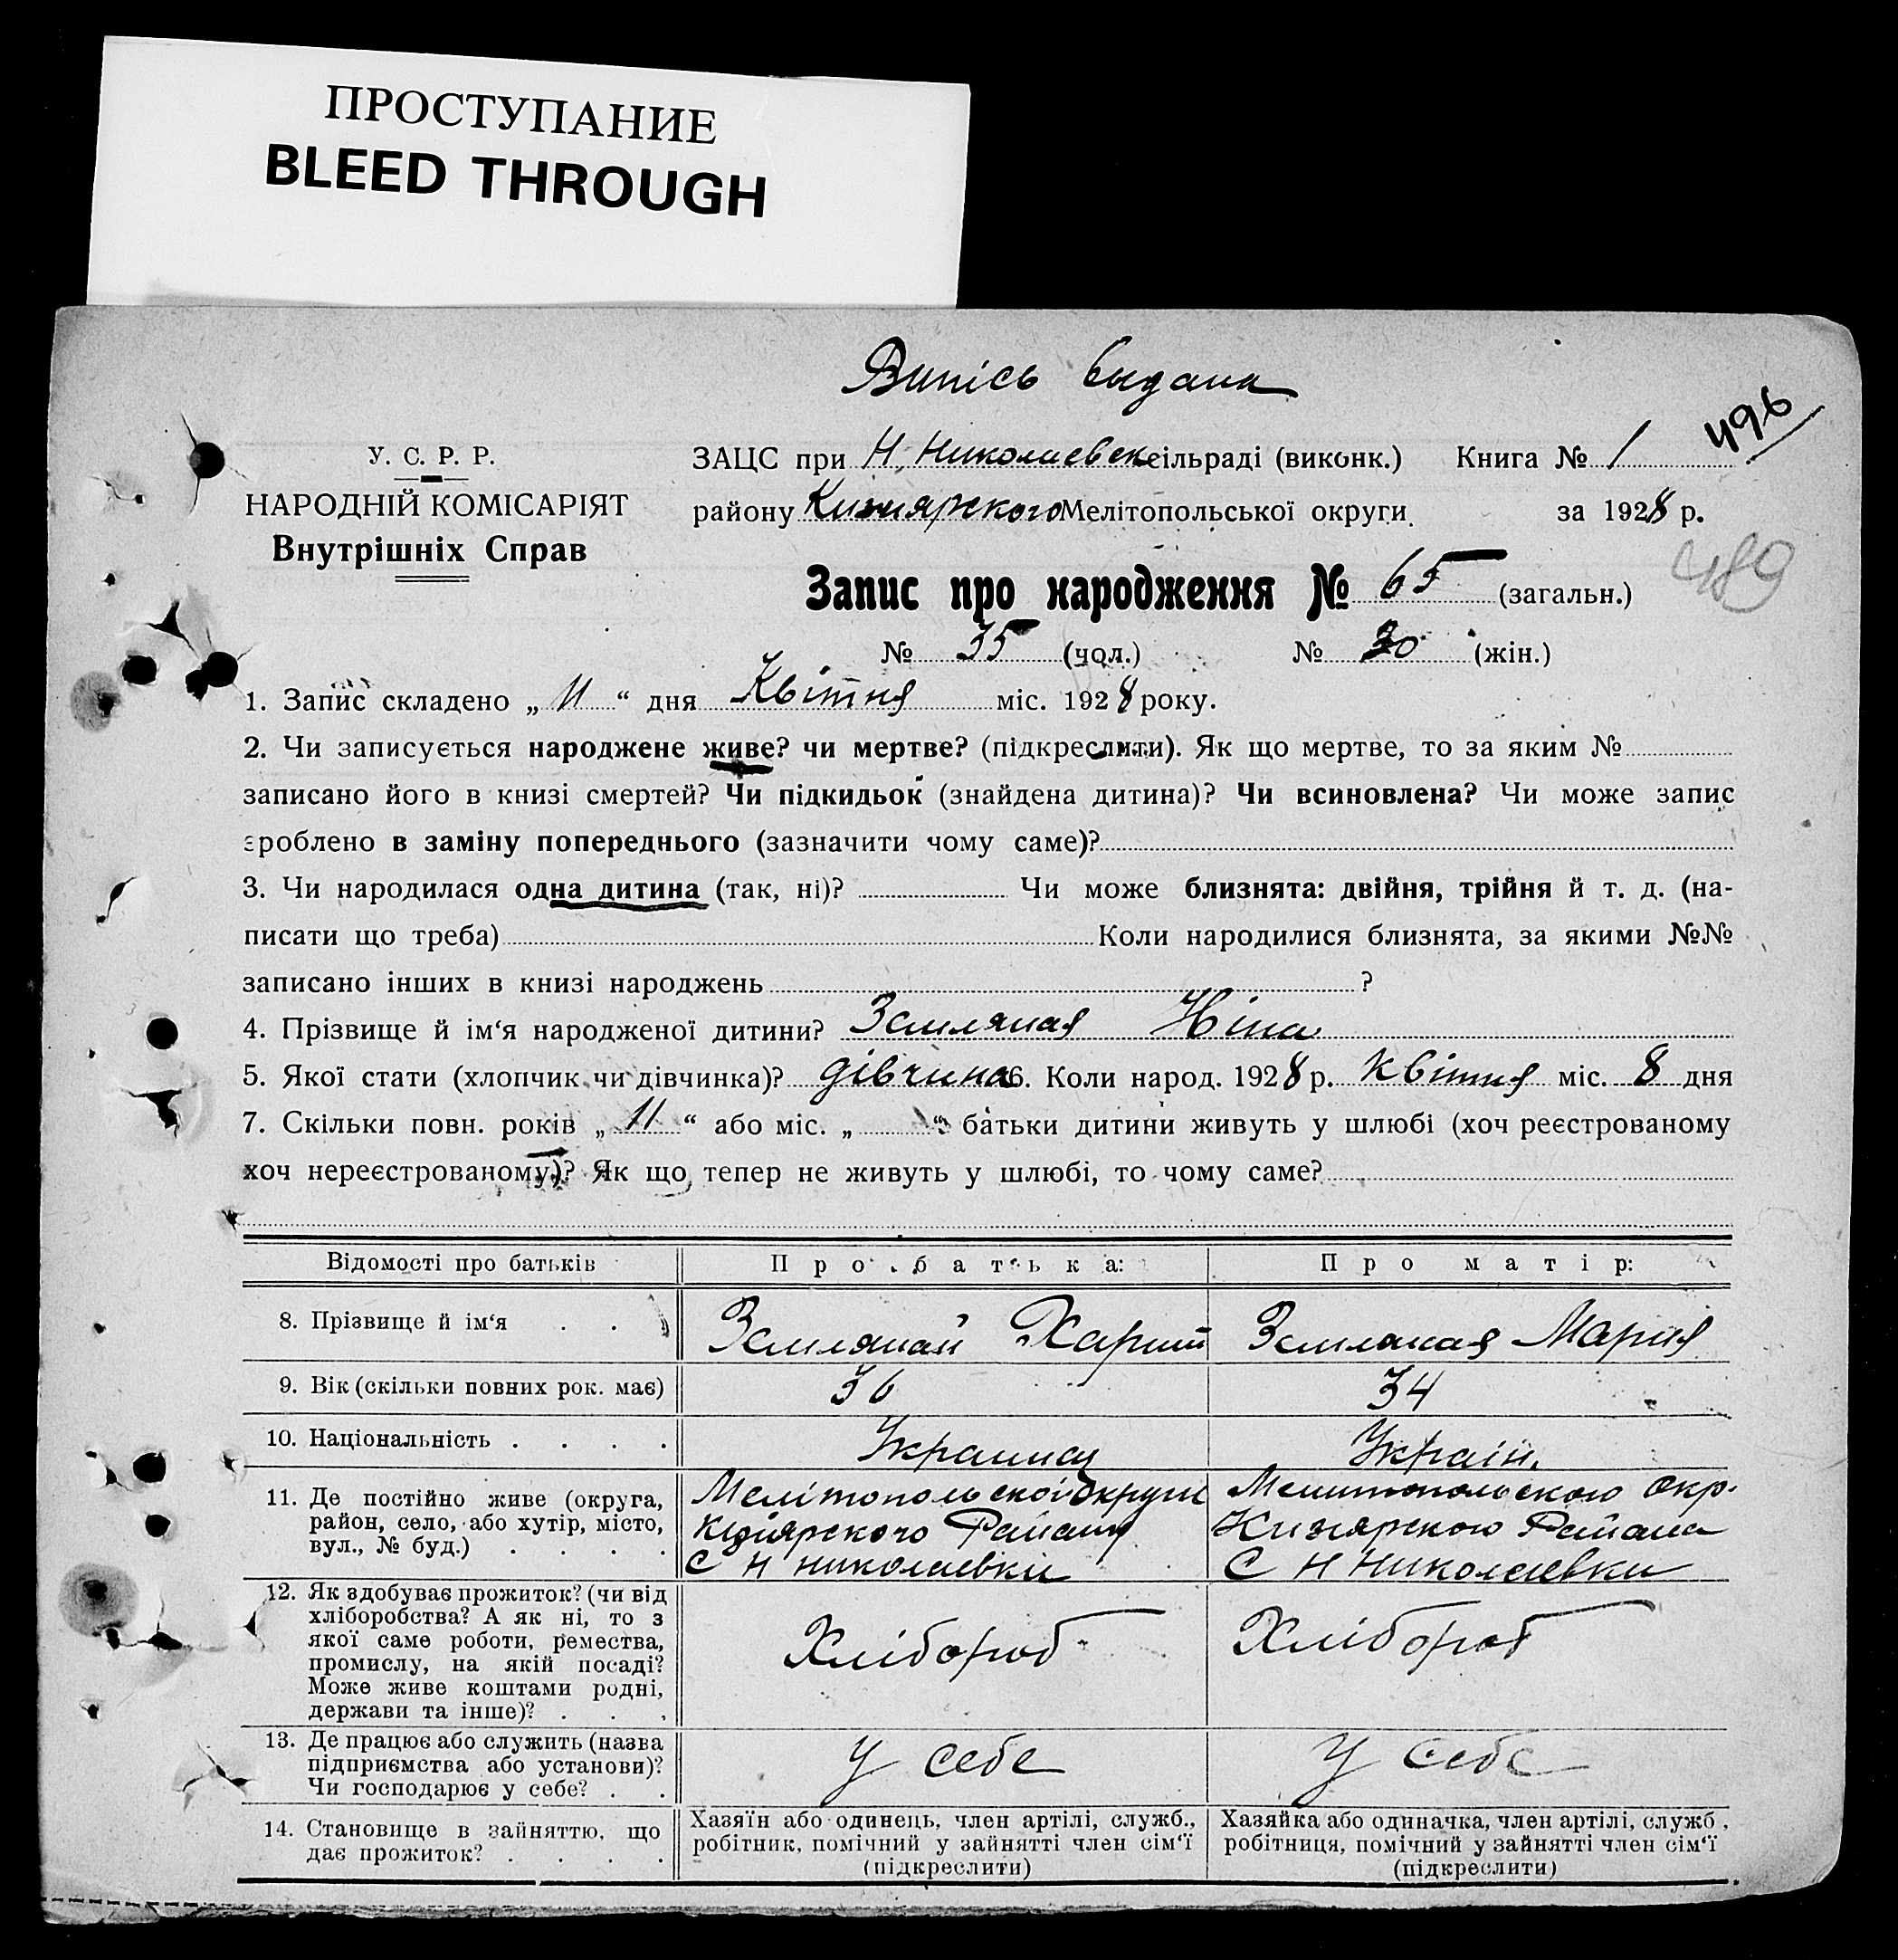 ПРОСТУПАНИЕ
BLEED THROUGH
Випісь выдана
496
У. С. Р. Р.
НАРОДНІЙ КОМІСАРІЯТ
Внутрішніх Справ
ЗАЦС при Н. Николаевск сільраді (виконк.) Книга № 1
району Кизиярского Мелітопольської округи за 1928 р.
489
Запис про народження № 65 (загальн.)
№ 35 (чол.) № 30 (жін.)
1. Запис складено „ 11 “ дня Квітня міс. 1928 року.
2. Чи записується народжене живе? чи мертве? (підкреслити). Як що мертве, то за яким №
записано його в книзі смертей? Чи підкидьок (знайдена дитина)? Чи всиновлена? Чи може запис
зроблено в заміну попереднього (зазначити чому саме)?
3. Чи народилася одна дитина (так, ні)? Чи може близнята: двійня, трійня й т. д. (на-
писати що треба) Коли народилися близнята, за якими №№
записано інших в книзі народжень ?
4. Прізвище й ім‘я народженої дитини? Земляная Ніна
5. Якої стати (хлопчик чи дівчинка)? дівчина 6. Коли народ. 1928 р. квітня міс. 8 дня
7. Скільки повн. років „ 11 “ або міс. „ “ батьки дитини живуть у шлюбі (хоч реєстрованому
хоч нереєстрованому)? Як що тепер не живуть у шлюбі, то чому саме?
Відомості про батьків Про батька: Про матір:
8. Прізвище й ім‘я Земляной Харит Земляная Мария
9. Вік (скільки повних рок. має) 36 34
10. Національність Украинец Україн.
11. Де постійно живе (округа,
район, село, або хутір, місто,
вул., № буд.)
Мелітопольской Округи
Кизиярского Района
С Н Николаевки
Мелитопольского Окр.
Кизиярского Района
С Н Николаевки
12. Як здобуває прожиток? (чи від
хліборобства? А як ні, то з
якої саме роботи, ремества,
промислу, на якій посаді?
Може живе коштами родні,
держави та інше)?
Хлібороб
Хлібороб
13. Де працює або служить (назва
підприємства або установи)?
Чи господарює у себе?
У себе
У себе
14. Становище в зайняттю, що
дає прожиток?
Хазяїн або одинець, член артілі, служб.,
робітник, помічний у зайнятті член сім‘ї
(підкреслити)
Хазяйка або одиначка, член артілі, служб.,
робітниця, помічний у зайнятті член сім‘ї
(підкреслити)